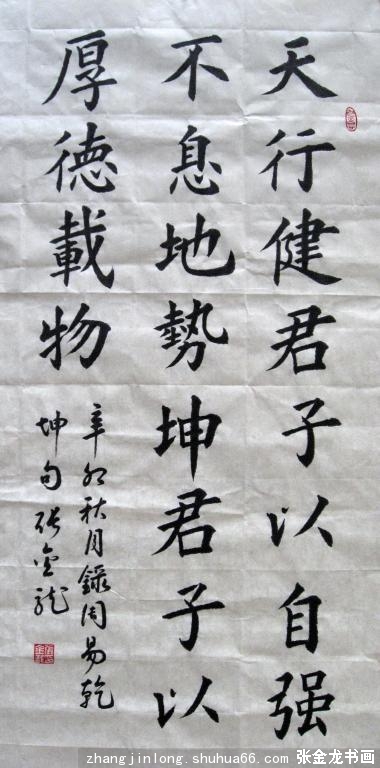 天行健君子以自强
不息地勢坤君子以
厚德載物
辛卯秋月錄周易乾
坤句張金龍
zhangjinlong.shuhua66.com
张金龙书画